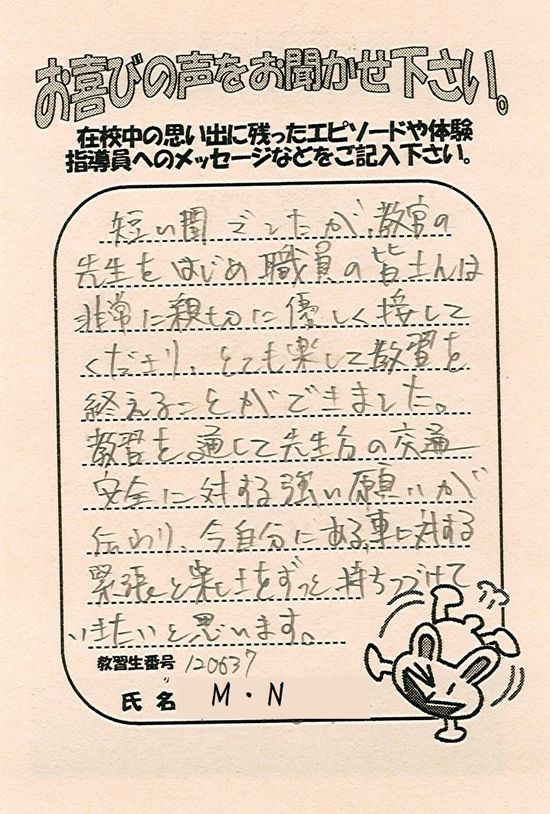 お喜びの声をお聞かせ下さい。
在校中の思い出に残ったエピソードや体験
指導員へのメッセージなどをご記入下さい。
短い間でしたが、教官の
先生をはじめ職員の皆さんは
非常に親切に優しく接して
くださり、とても楽して教習を
終えることができました。
教習を通じて先生方の交通
安全に対する強い願いが
伝わり、今自分にある、車に対する
緊張と楽しさをずっと持ちつづけて
いきたいと思います。
教習生番号 120637
氏名 M・N